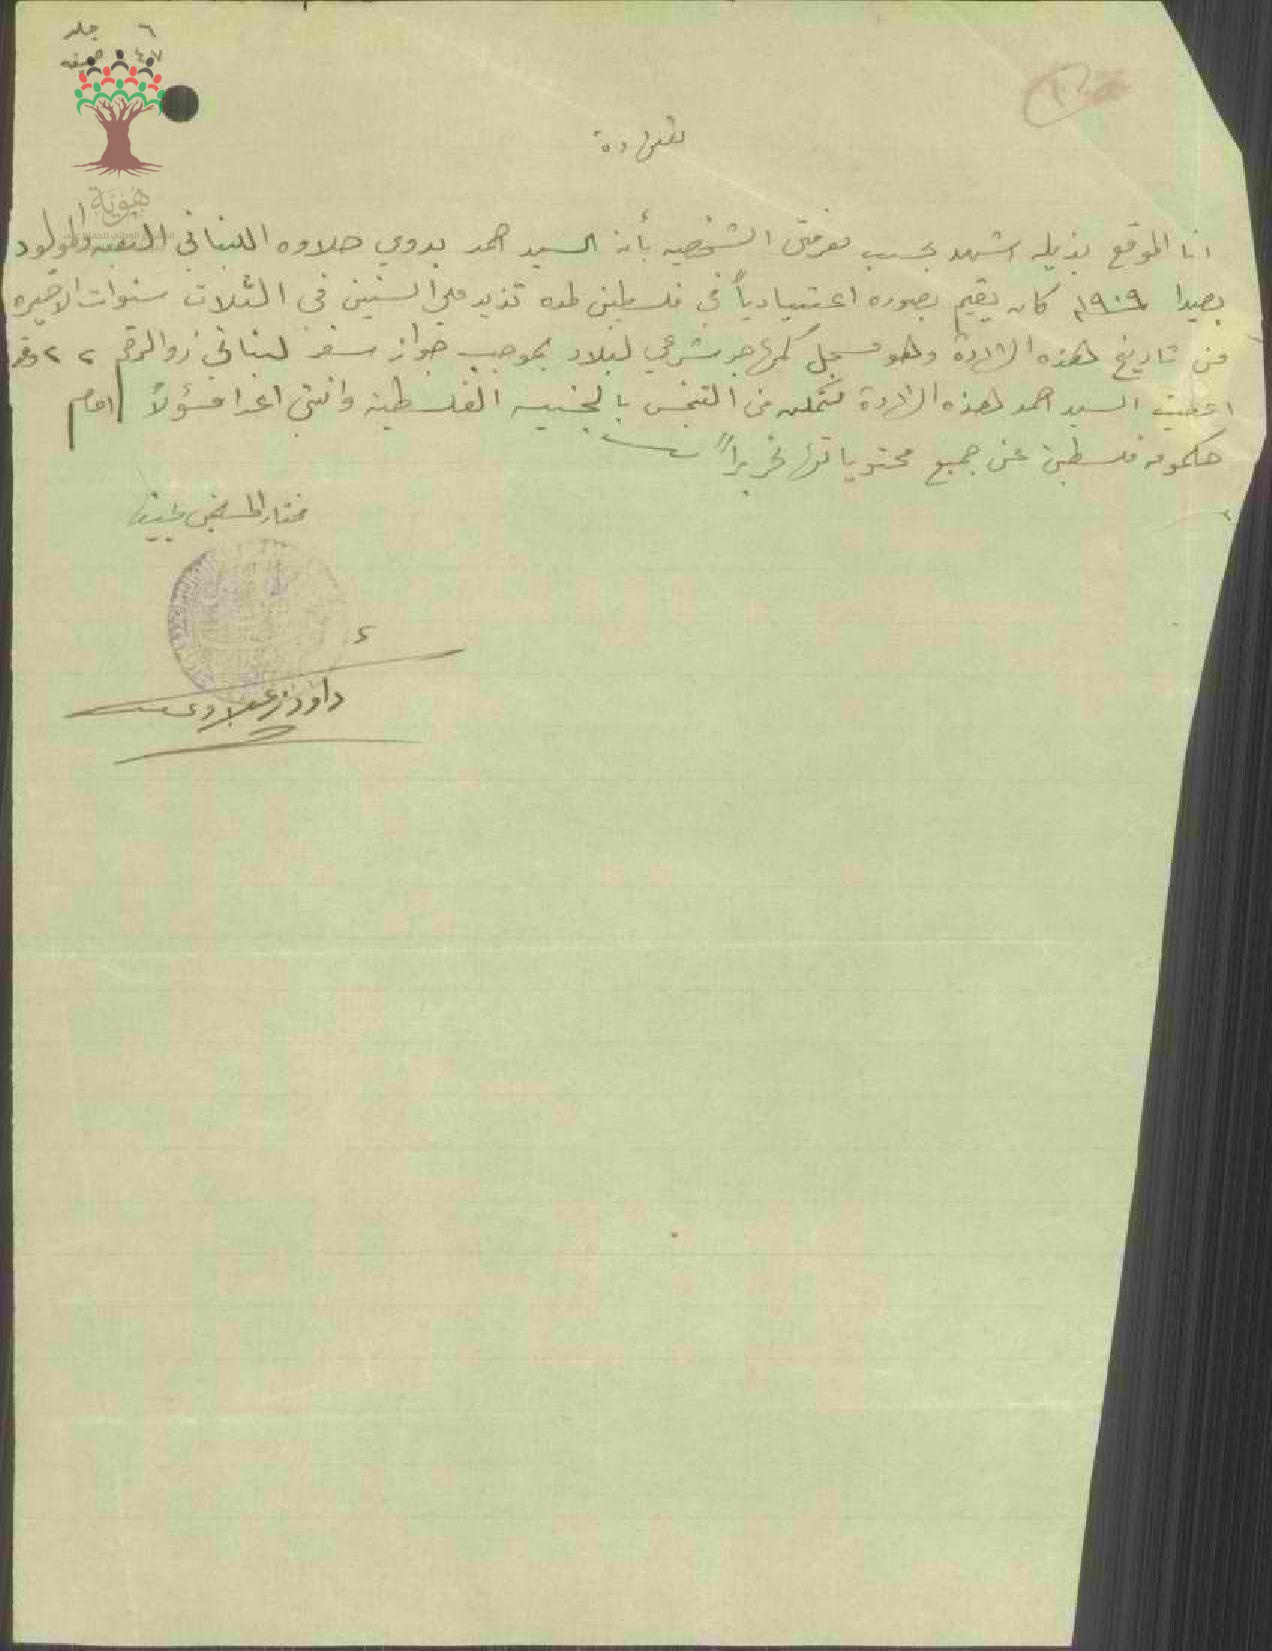 ٦ جلد
٤٠٧ صحيفه
هوية
شهادة
انا الموقع بذيله اشهد بحسب معرفتي الشخصيه بأن السيد احمد بدوي حلاوه اللبناني التبعيه والمولود
بصيدا ١٩٠٩م كان يقيم بصوره اعتيادياً في فلسطين لمده تزيد على السنتين في الثلاث سنوات الاخيره
من تاريخ هذه الشهادة وهو مسجل كمهاجر شرعي لبلاد بموجب جواز سفر لبناني ذو الرقم ٢٢ وقد
اعطيت السيد احمد هذه الشهادة لتمكنه من التجنس بالجنسيه الفلسطينيه وانني اعد مسؤولاً امام
حكومة فلسطين عن جميع محتوياتها تحريراً
مختار المسلمين بحيفا
داود